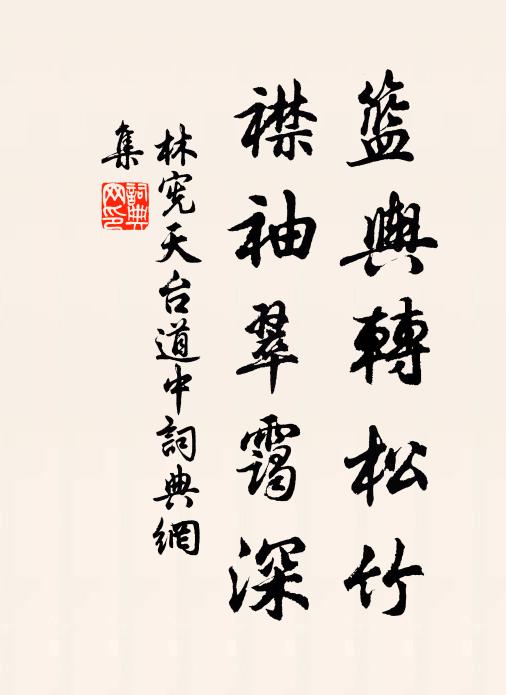 籃輿轉松竹
襟袖翠靄深
林宪天台道中詞典網
集
詞典
网印